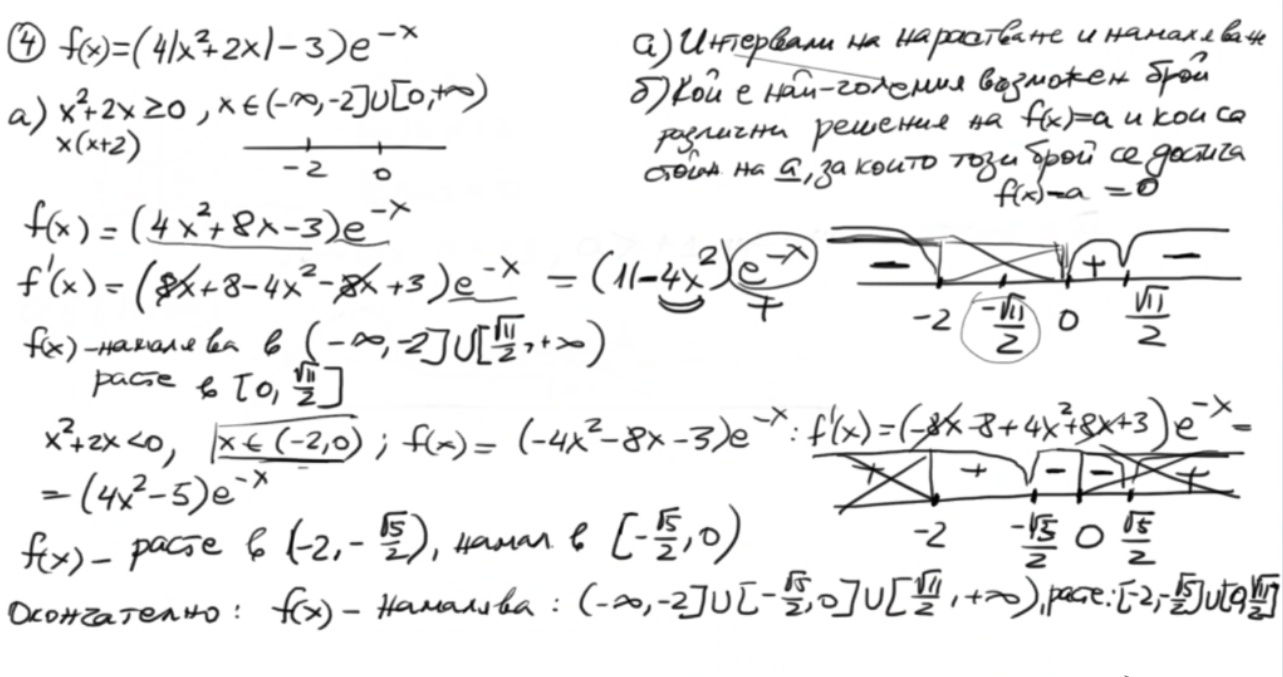 ④ f(x)=(4|x²+2x|-3)e^{-x}
а) x²+2x≥0, x∈(-∞,-2]∪[0,+∞)
x(x+2)
-2 0
а) Интервали на нарастване и намаляван
б) Кой е най-големия възможен брой
различни решения на f(x)=a и кои са
стойн. на a, за които този брой се достига
f(x)-a=0
f(x)=(4x²+8x-3)e^{-x}
f'(x)=(8x+8-4x²-8x+3)e^{-x}=(11-4x²)e^{-x}
+
- + -
-2 -√11/2 0 √11/2
f(x)-намалява в (-∞,-2]∪[√11/2,+∞)
расте в [0,√11/2]
x²+2x<0, x∈(-2,0); f(x)=(-4x²-8x-3)e^{-x}: f'(x)=(-8x-8+4x²+8x+3)e^{-x}=
=(4x²-5)e^{-x}
+ + - - +
-2 -√5/2 0 √5/2
f(x)-расте в (-2,-√5/2), намал. в [-√5/2,0)
Окончателно: f(x)-намалява: (-∞,-2]∪[-√5/2,0]∪[√11/2,+∞), расте: [-2,-√5/2]∪[0,√11/2]